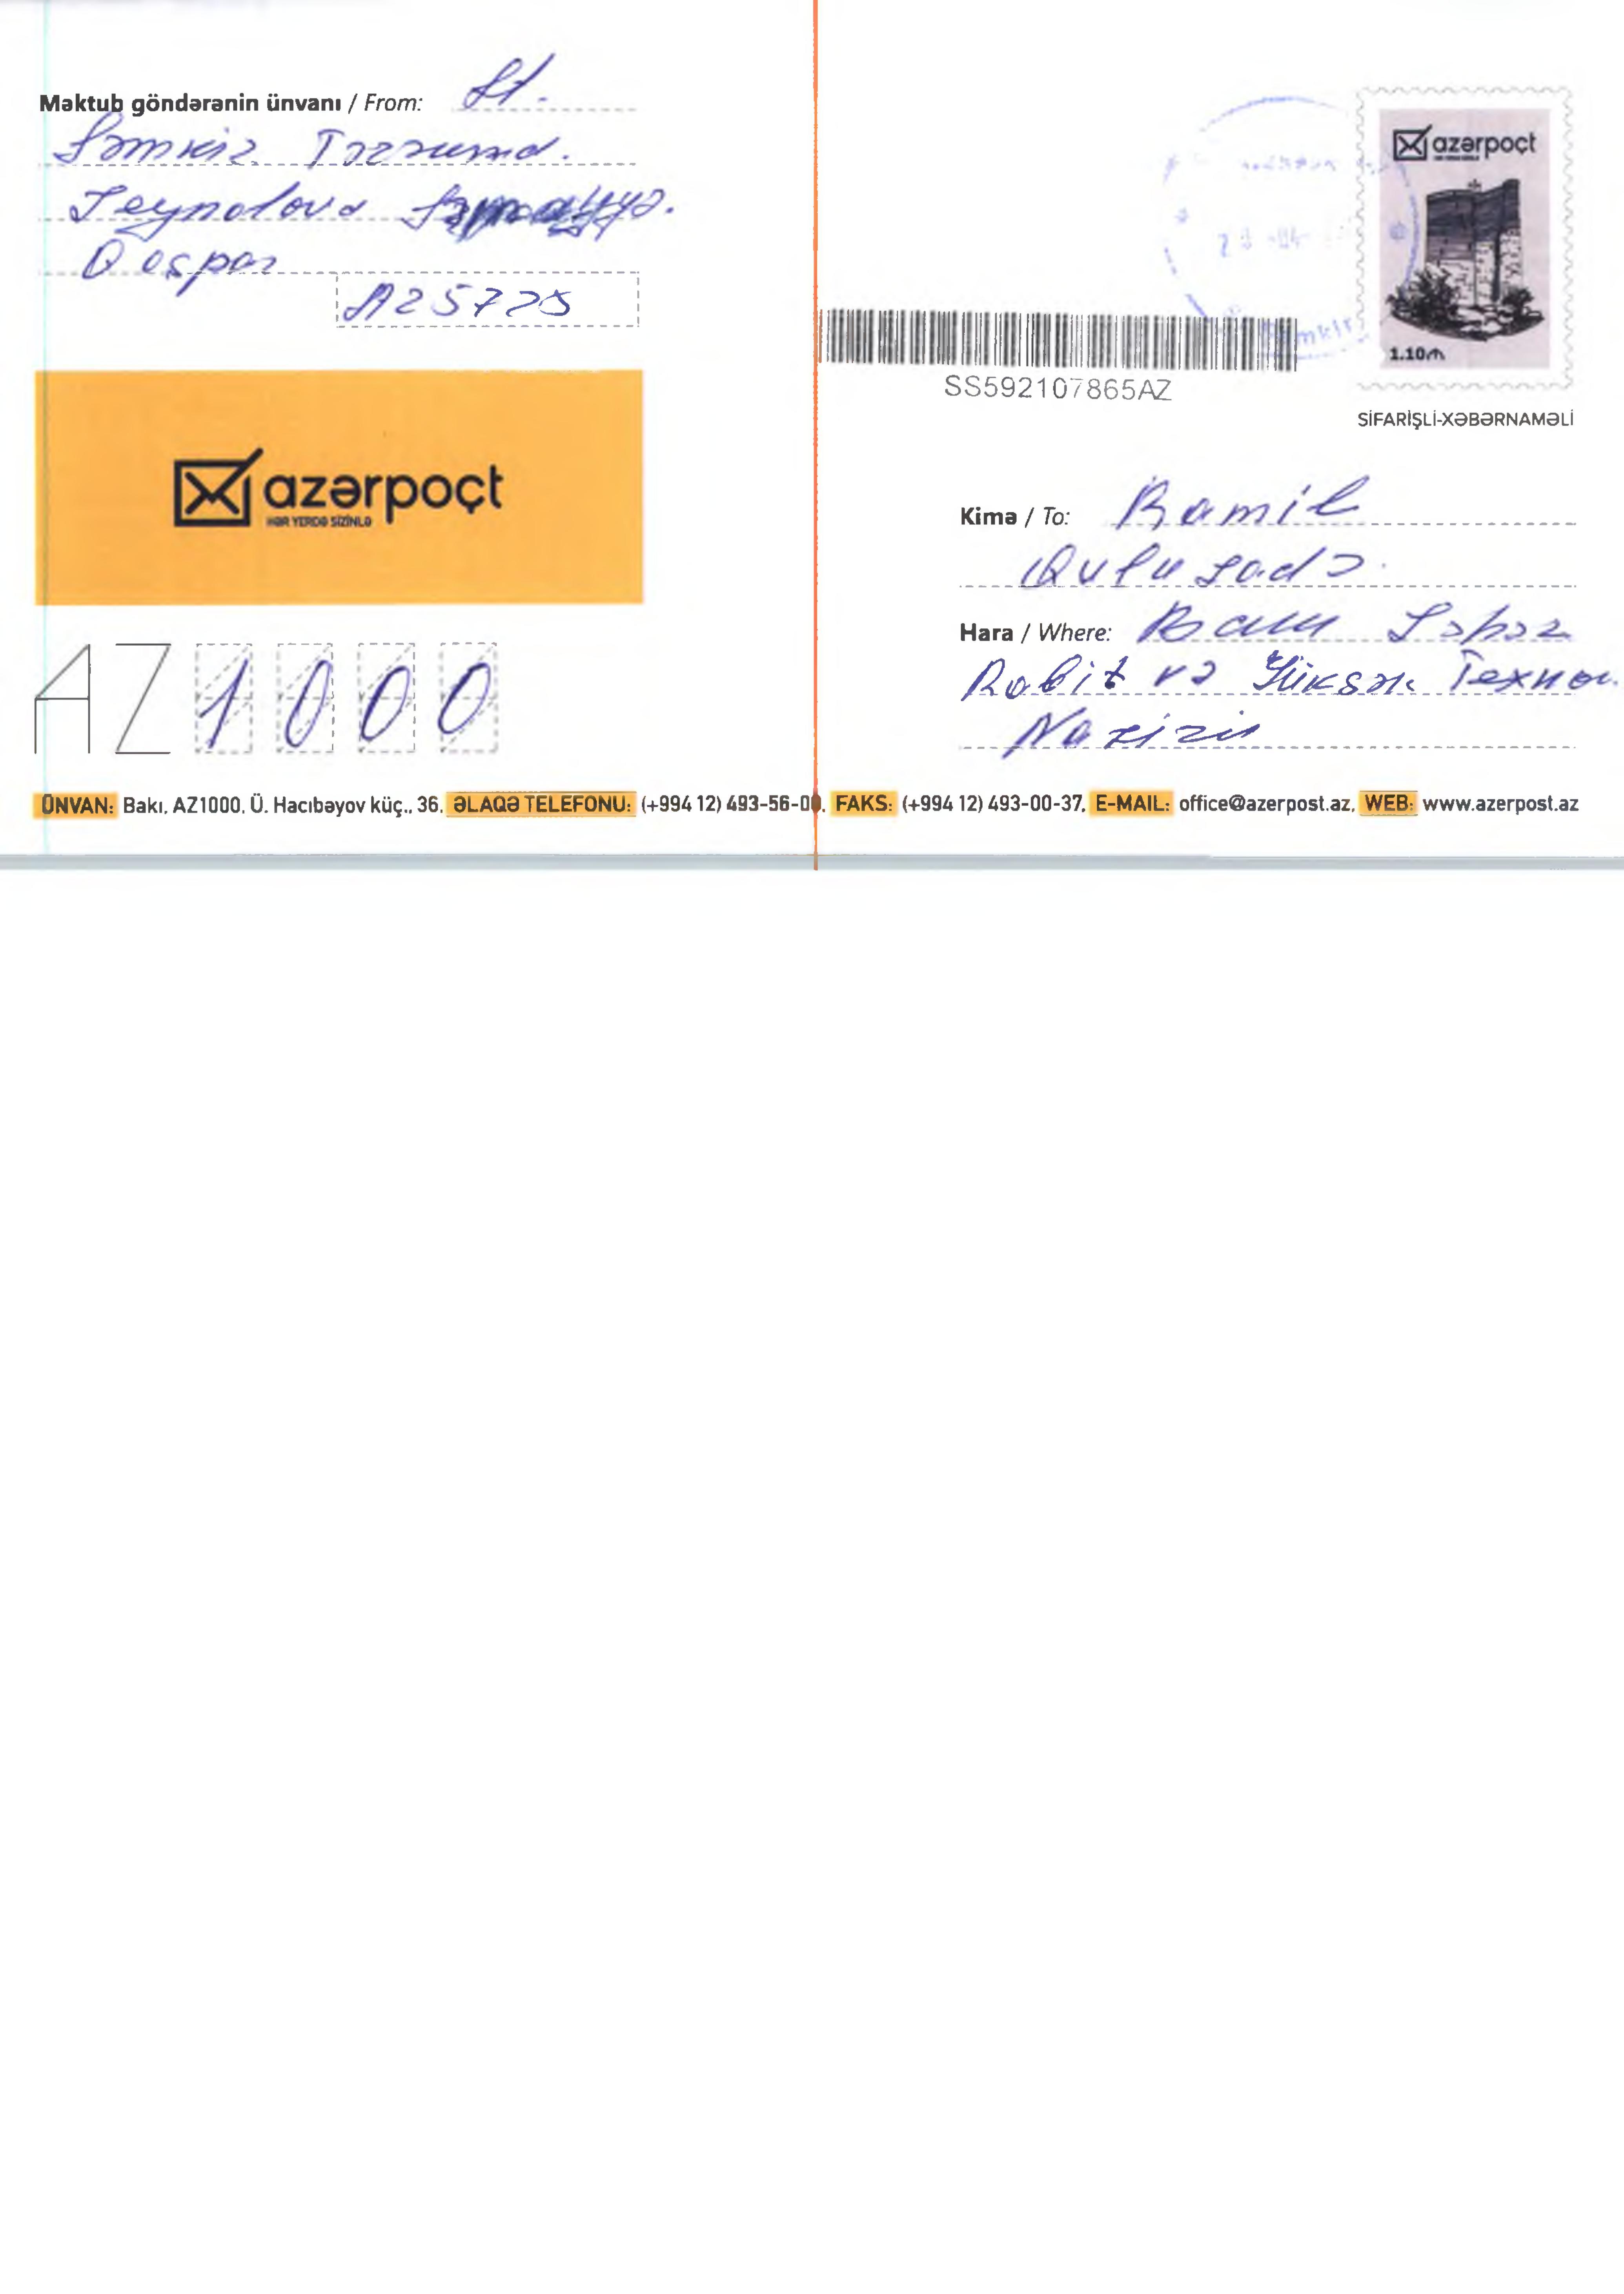 Məktub göndərənin ünvanı / From:
Şəmkir
Zeynalova
Qaspar
AZ5725
azərpoçt
HƏR YERDƏ SİZİNLƏ
AZ1000
azərpoçt
1.10₼
SS592107865AZ
SİFARİŞLİ-XƏBƏRNAMƏLİ
Kimə / To: Ramil
Quluzadə.
Hara / Where: Bakı Şəhər
Rabit və Yüksək Texnol.
Nazirli
ÜNVAN: Bakı, AZ1000, Ü. Hacıbəyov küç., 36, ƏLAQƏ TELEFONU: (+994 12) 493-56-00, FAKS: (+994 12) 493-00-37, E-MAIL: office@azerpost.az, WEB: www.azerpost.az